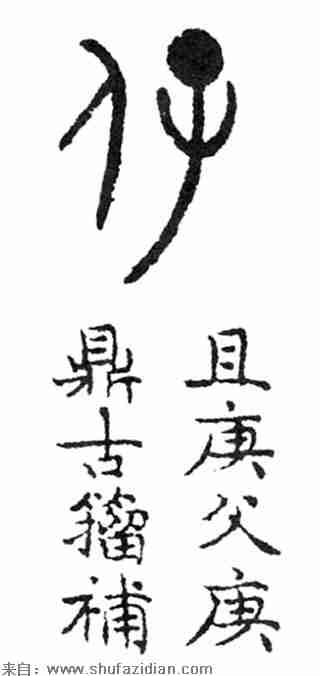 仔
且庚父庚
鼎古籀補
来自：www.shufazidian.com